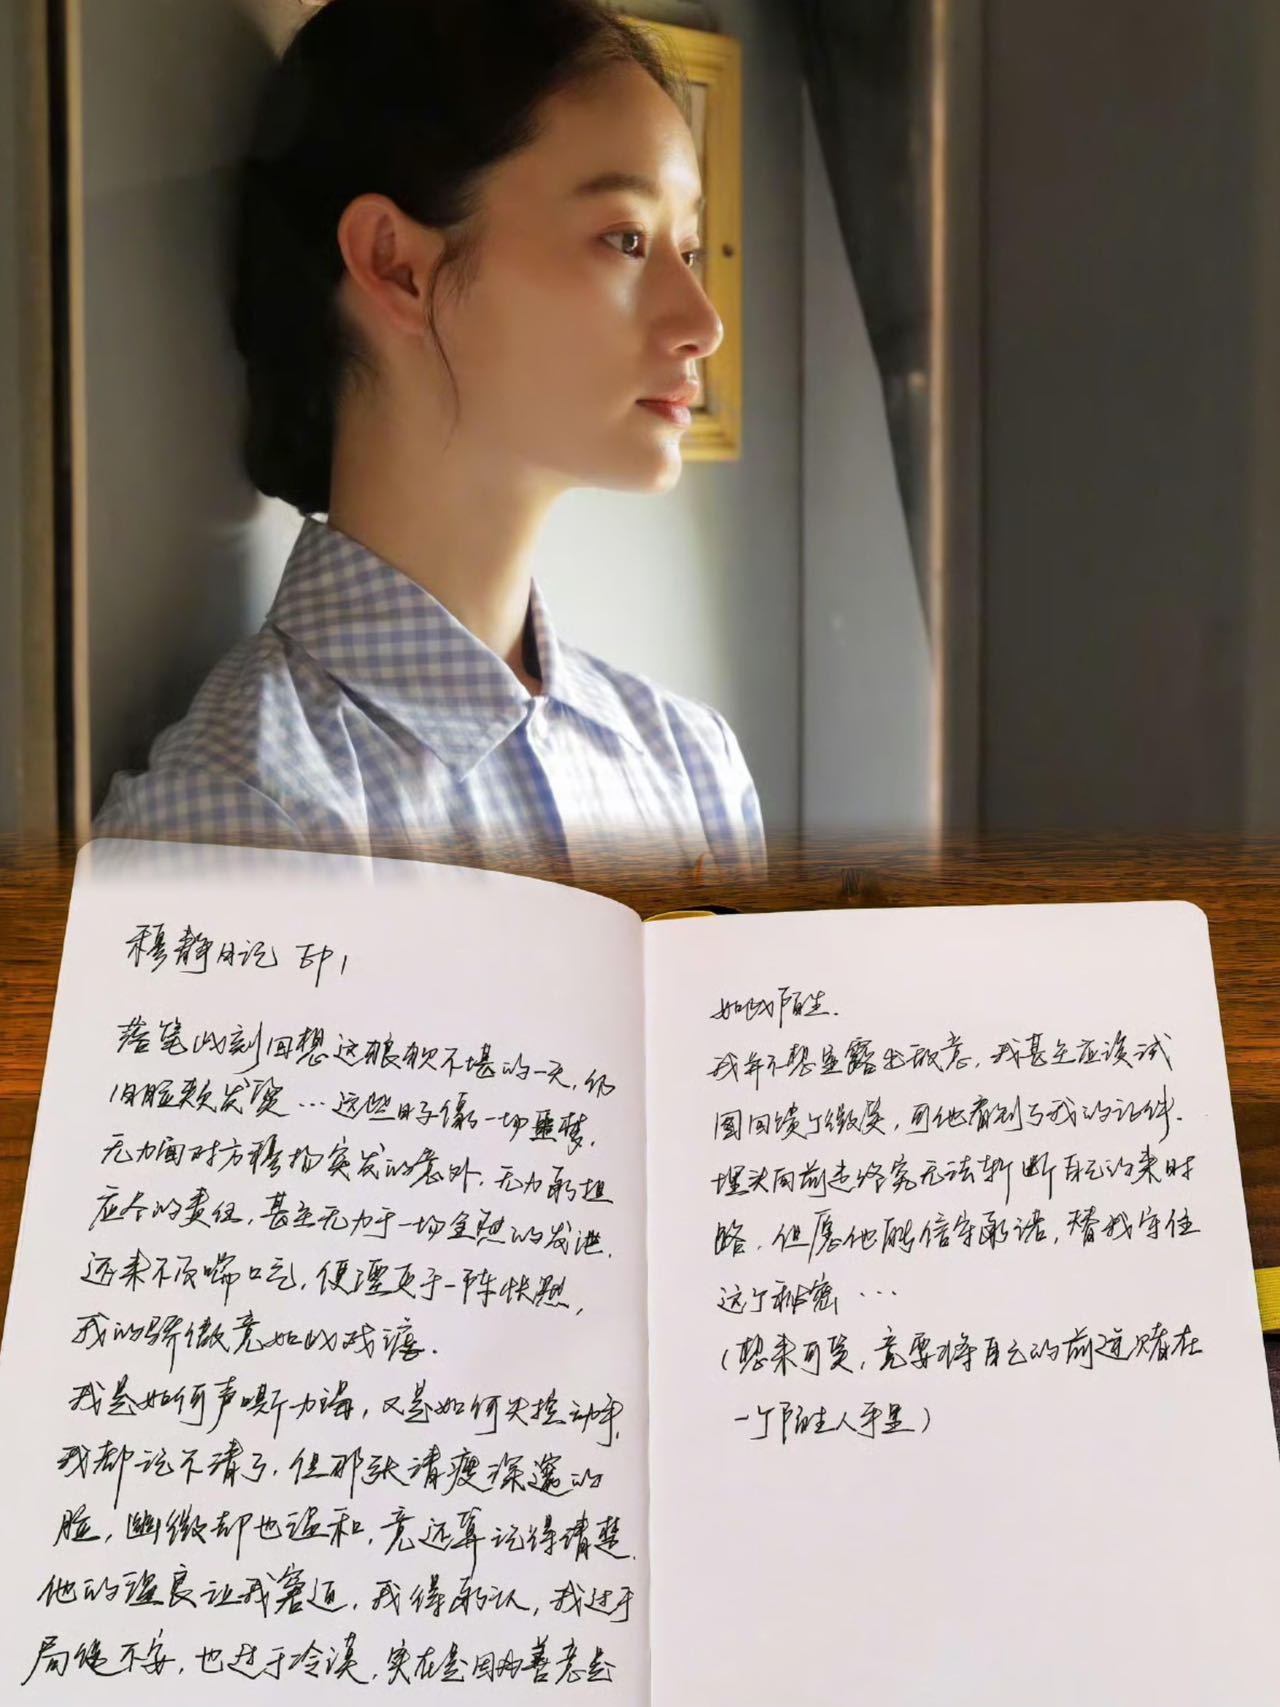 穆静日记 EP1
落笔此刻回想这狼狈不堪的一天，仍
旧脸颊发烫…这些日子像一场噩梦，
无力面对方穆扬突发的意外，无力承担
应今的责任，甚至无力于一场全然的发泄，
还来不及喘口气，便湮灭于一阵快慰，
我的骄傲竟如此残忍．
我是如何声嘶力竭，又是如何失控动手，
我都记不清了，但那张清瘦深邃的
脸，幽微却也温和，竟还算记得清楚．
他的温良让我窘迫，我得承认，我过于
局促不安，也过于冷漠，实在是因为善意是
如此陌生．
我并不想显露出敌意，我甚至应该试
图回馈个微笑，可他看到了我的证件．
埋头向前走终究无法斩断自己的来时
路，但愿他能信守承诺，替我守住
这个秘密…
（想来可笑，竟要将自己的前途赌在
一个陌生人手里）